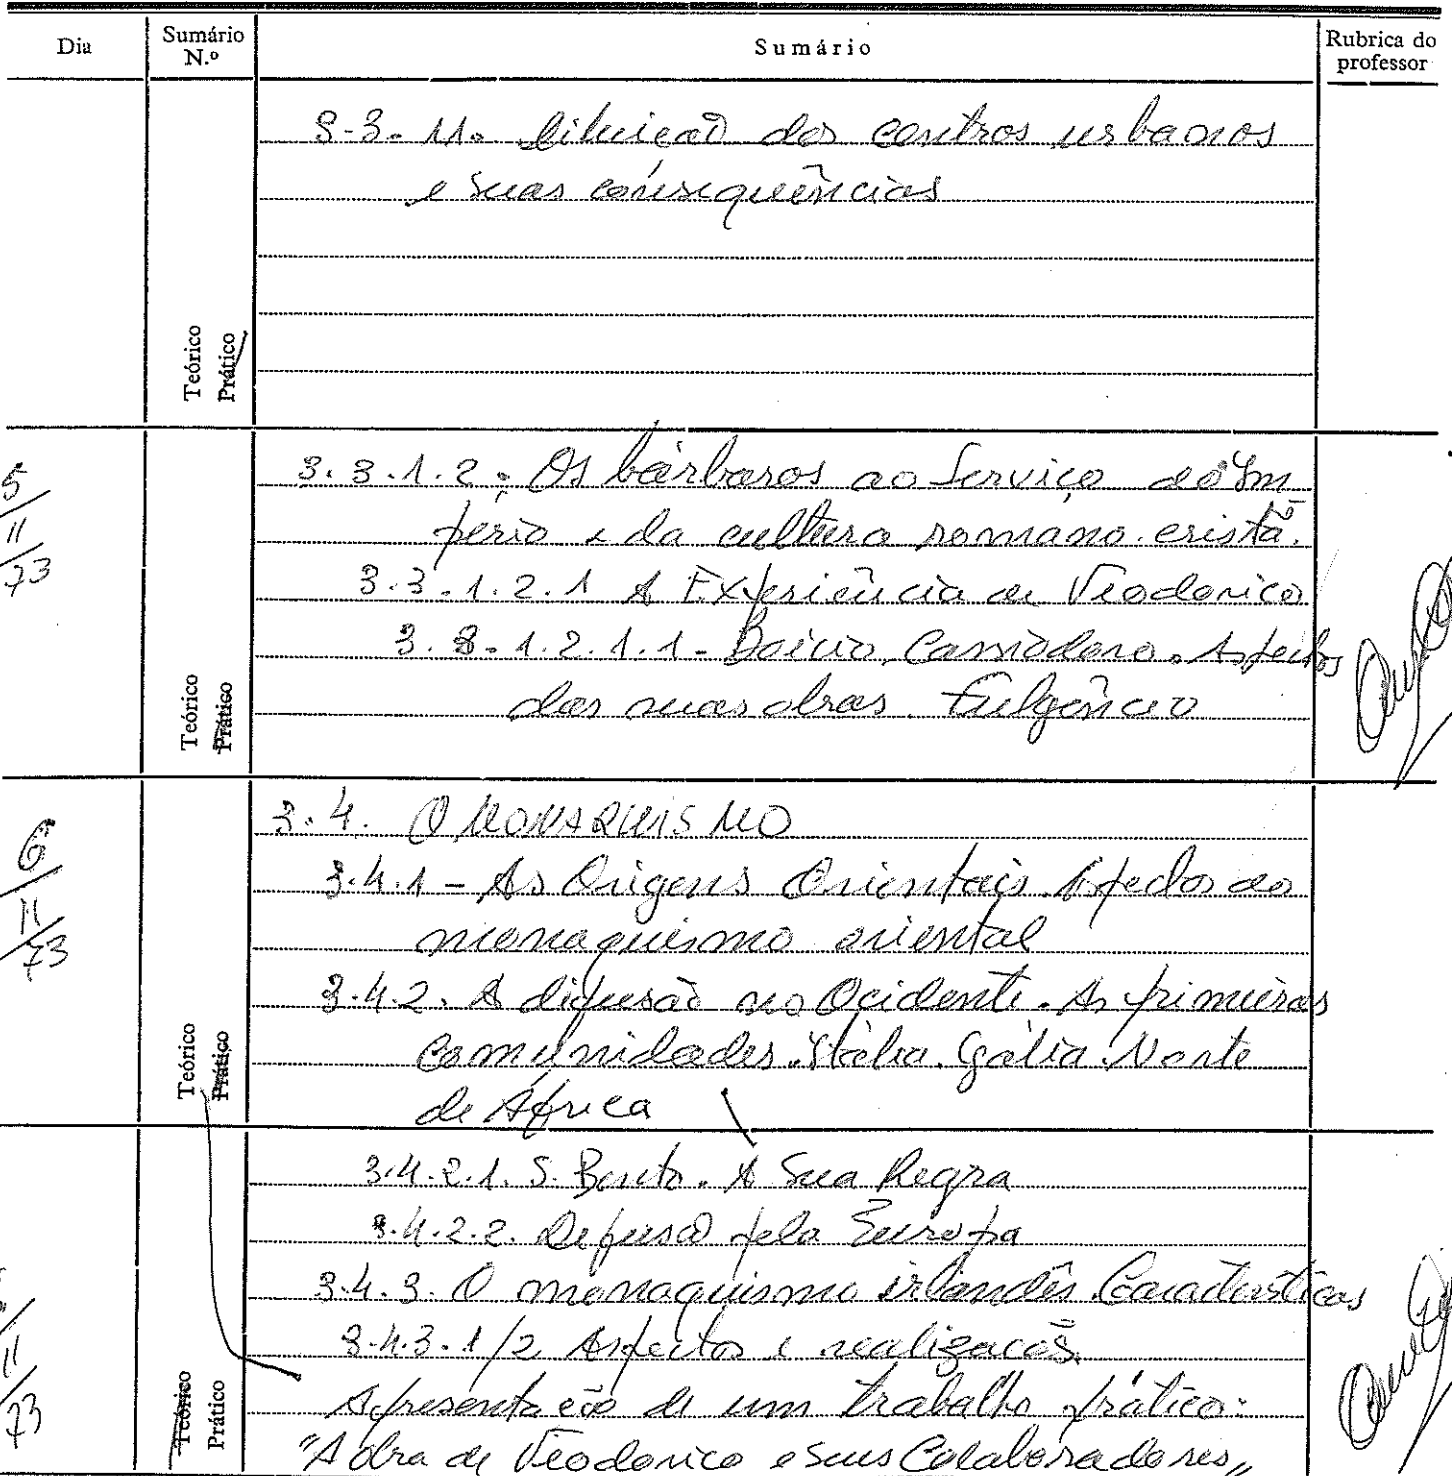 Dia
Sumário N.º
Sumário
Rubrica do professor
3-3- 11. Diluição dos centros urbanos
e suas consequências
Teórico
Prático
5/11/73
3.3.1.2. Os bárbaros ao Serviço do Im
pério e da cultura romano-cristã.
3.3.1.2.1 A Experiência de Teodorico
3.3.1.2.1.1- Boécio, Cassiodoro. Aspectos
das suas obras. Fulgêncio
Teórico
Prático
6/11/73
3.4. O MONAQUISMO
3.4.1 - As Origens Orientais. Aspectos do
monaquismo oriental
3.4.2. A difusão no Ocidente. As primeiras
Comunidades. Itália. Gália. Norte
de África
Teórico
Prático
3.4.2.1. S. Bento. A Sua Regra
3.4.2.2. Difusão pela Europa
3.4.3. O monaquismo irlandês Características
3.4.3.1/2 Aspectos e realizações.
Apresentação de um trabalho prático:
"A obra de Teodorico e Seus Colaboradores"
Teórico
Prático
11/73